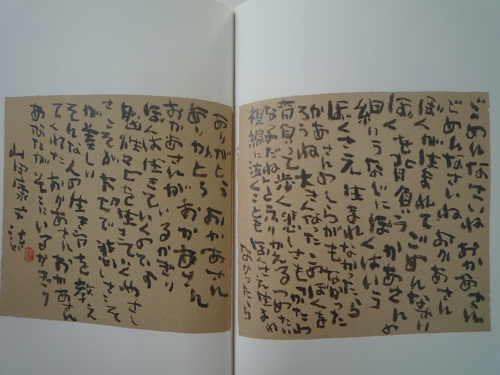 ごめんなさいね おかあさん
ごめんなさいね おかあさん
ぼくが生まれて ごめんなさい
ぼくを背負う かあさんの
細いうなじに ぼくはいう
ぼくさえ 生まれなかったら
かあさんの しらがもなかった
ろうね 大きくなった このぼくを
背負って歩く 悲しさも かたわ
な子だねと ふりかえる つめたい
視線に泣くことも ぼくさえ生まれ
なかったら
ありがとう おかあさん
ありがとう おかあさん
おかあさんが いるかぎり
ぼくは生きていくのです
脳性マヒを 生きていく やさし
さこそが 大切で 悲しさこそ
が美しい
そんな 人の生き方を 教え
てくれた おかあさん おかあさん
あなたがそこに いるかぎり
山田康文